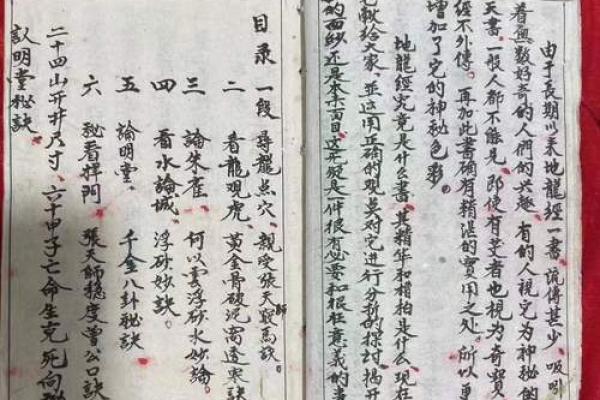 由于長期以来地龍經一書，流傳甚少，吸引
着無数好奇的人們的兴趣，有的人視它为神秘的
天書，一般人都不能見，即使有芰者也視为奇寶
經不外傳。再加此書确有精湛的實用之处。所以更
增加了它的神秘色彩。
地龍經究竟是什么書，其精华和糟粕是什么，現在
它献給大家，並运用正确的观奌对它进行分析的探討，揭开
的面纱，还是本來面目，这无疑是一件很有必要和很狂意義的事
目录
一段 尋龍点穴、親受張天師寫訣
二 看龍观虎、黄金骨破泥高透寒訣
三 論朱雀 何以雲浮砂水妙論。
四 看水論城、浮砂妙訣。
五 論明堂、千金八卦秘訣
六 秘看捍門 張天師稳度曾公口訣
二十四山开井尺寸、六十甲子亡命生克死向秘
訣明堂秘訣